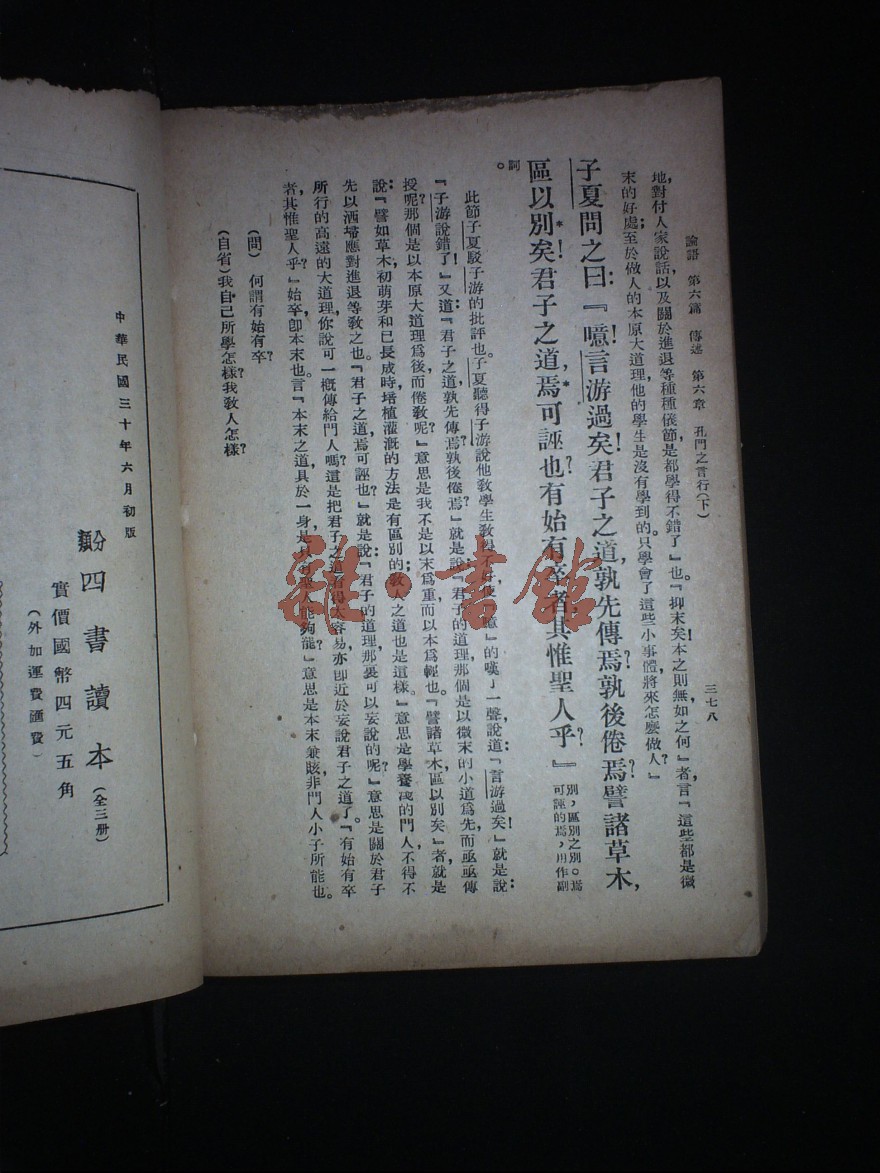 論語　第六篇　傳述　第六章　孔門之言行(下)
三七八
地對付人家說話，以及關於進退等種種儀節，是都學得不錯了』也。『抑末矣；本之則無如之何』者，言『這些都是微
末的好處；至於做人的本原大道理，他的學生是沒有學到的。只學會了這些小事體，將來怎麼做人？』
子夏問之曰：『噫！言游過矣！君子之道，孰先傳焉？孰後倦焉？譬諸草木，
區以別矣！君子之道，焉可誣也？有始有卒者，其惟聖人乎？』
別，區別之別。焉
可誣的焉，用作副
詞。
此節子夏駁子游的批評也。子夏聽得子游說他敎學生敎得不好，便『噫』的嘆了一聲，說道：『言游過矣！』就是說：
『子游說錯了！』又道：『君子之道，孰先傳焉？孰後倦焉？』就是說：『君子的道理，那個是以微末的小道爲先，而亟亟傳
授呢？那個是以本原大道理爲後，而倦敎呢？』意思是我不是以末爲重而以本爲輕也。『譬諸草木，區以別矣』者，就是
說：『譬如草木初萌芽和已長成時，培植灌漑的方法是有區別的；敎人之道也是這樣。』意思是學養淺的門人，不得不
先以洒埽應對進退等敎之也。『君子之道，焉可誣也？』就是說：『君子的道理，那裏可以妄說的呢？』意思是關於君子
所行的高遠的大道理，你說可一槪傳給門人嗎？這是把君子之道看得太容易，亦卽近於妄說君子之道了。『有始有卒
者，其惟聖人乎？』始卒卽本末也。言『本末之道具於一身，是只有聖人能夠罷』意思是本末兼賅，非門人小子所能也。
(問)　何謂有始有卒？
(自省)我自己所學怎樣？我敎人怎樣？
中華民國三十年六月初版
四書讀本(全三册)
實價國幣四元五角
(外加運費匯費)
雜·書館